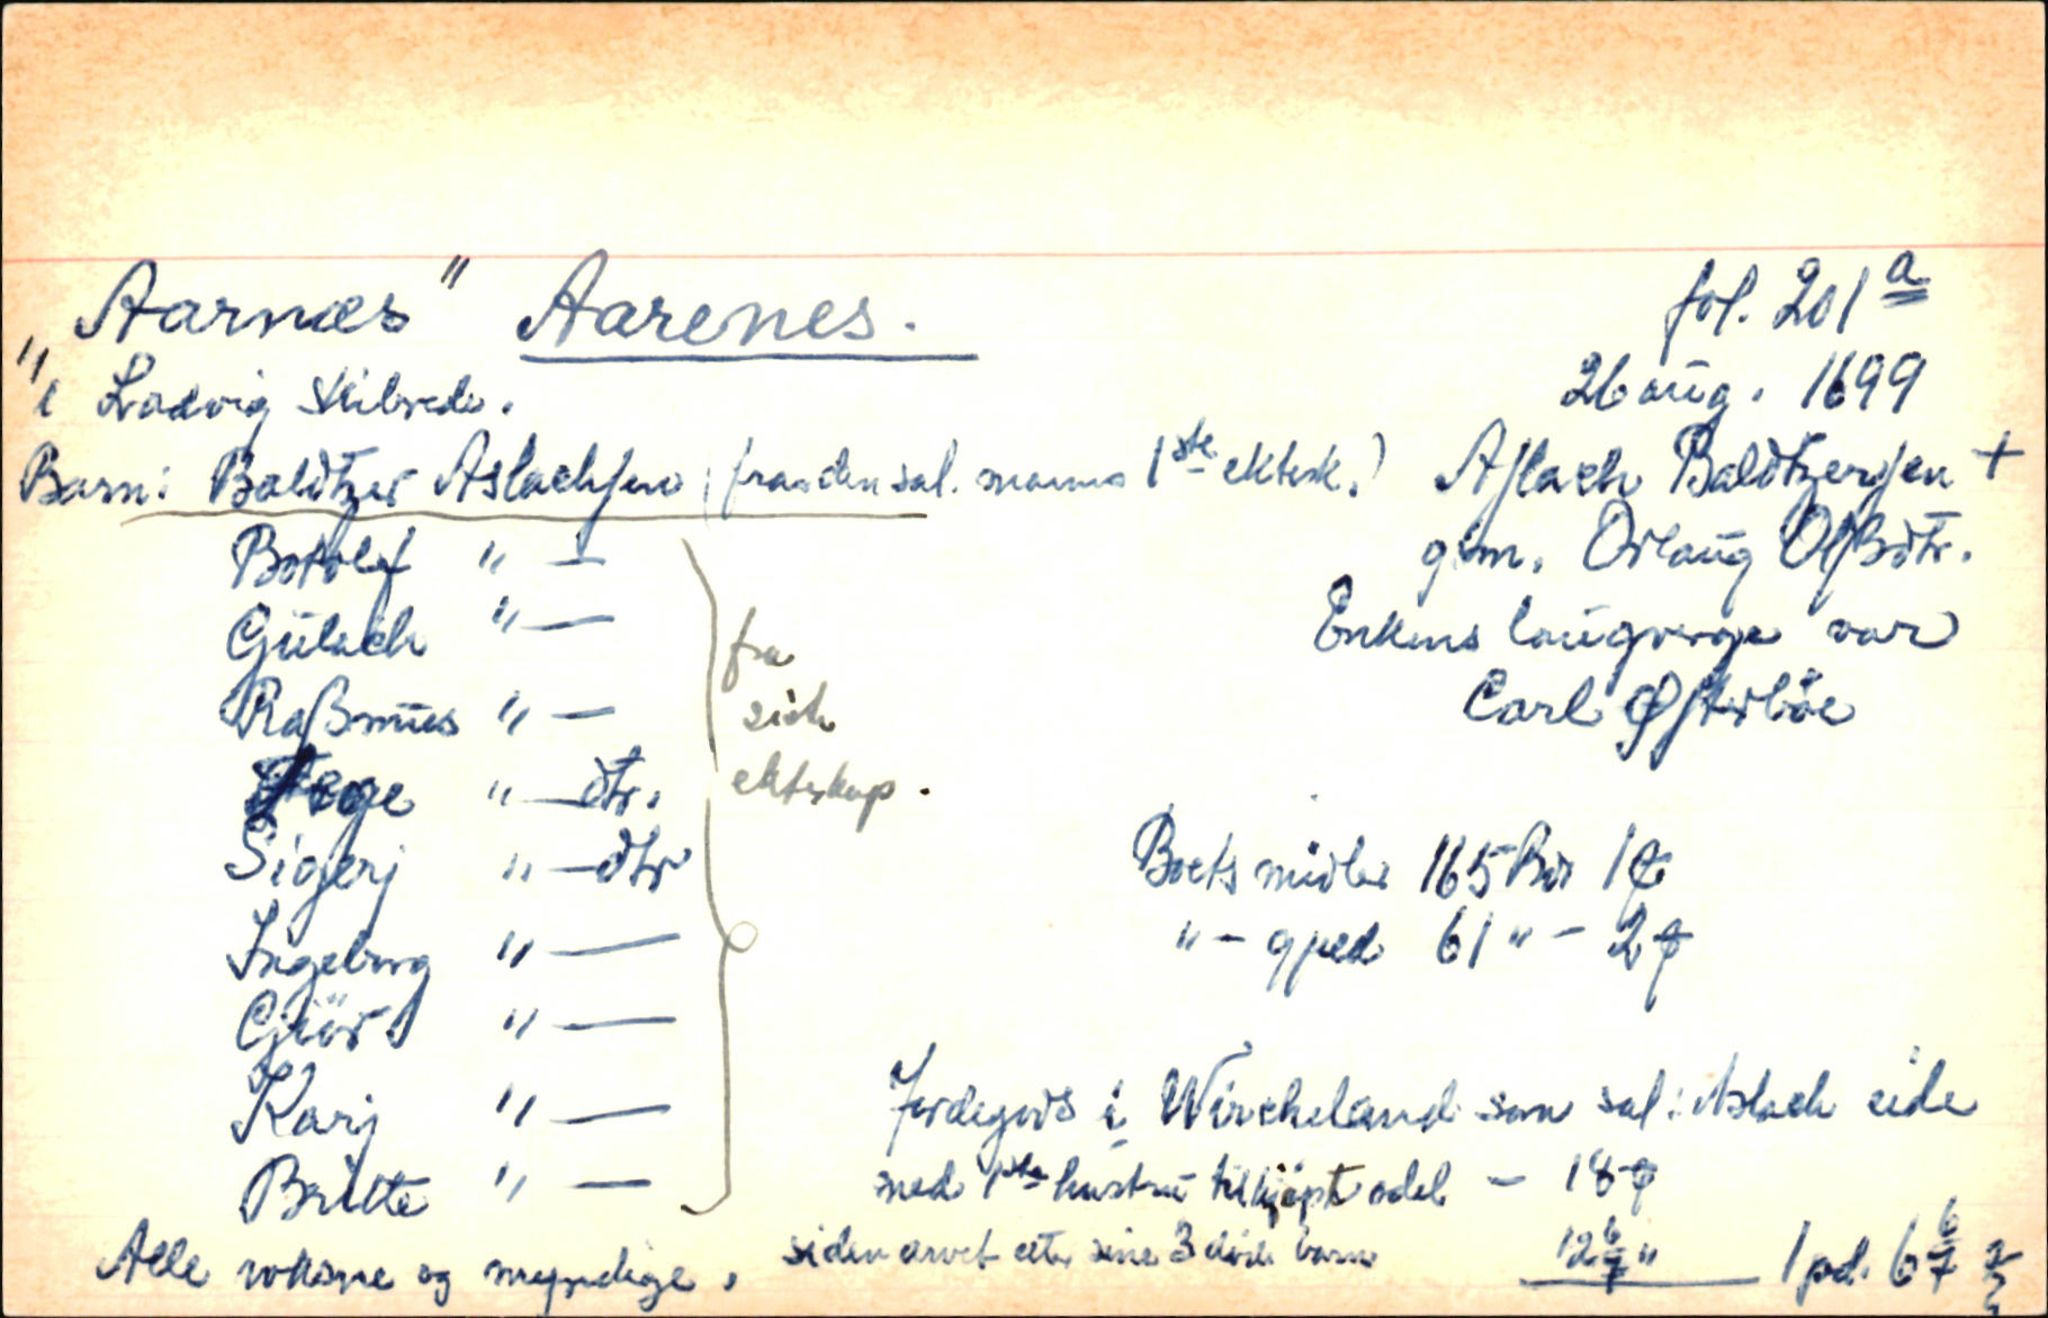 "Aarnæs" Aarenes. fol. 201 a
" i Ladvig skibrede. 26 aug. 1699
Barn: Baldtzer Aslachsen (fra den sal. manns 1ste ektesk.) Aslach Baldtzersen +
Botolf " — gim. Orlaug Olsdtr.
Gulach " — Enkens laugverge var
Raßmus " — fra Carl Østerbøe
" — dtr. siste ektskap.
Sigerj " — dtr Boets midler 165 Rdr 1
Ingeborg " — " — gjeld 61 " - 2
Giør " —
Karj " — Jordegods i Wircheland som sal: Aslach eide
Britte " — med 1ste hustru tilkjøpt odel - 18
Alle voksne og myndige, siden arvet etter sine 3 døde barn 12 6/7 " 1 pd. 6 6/7